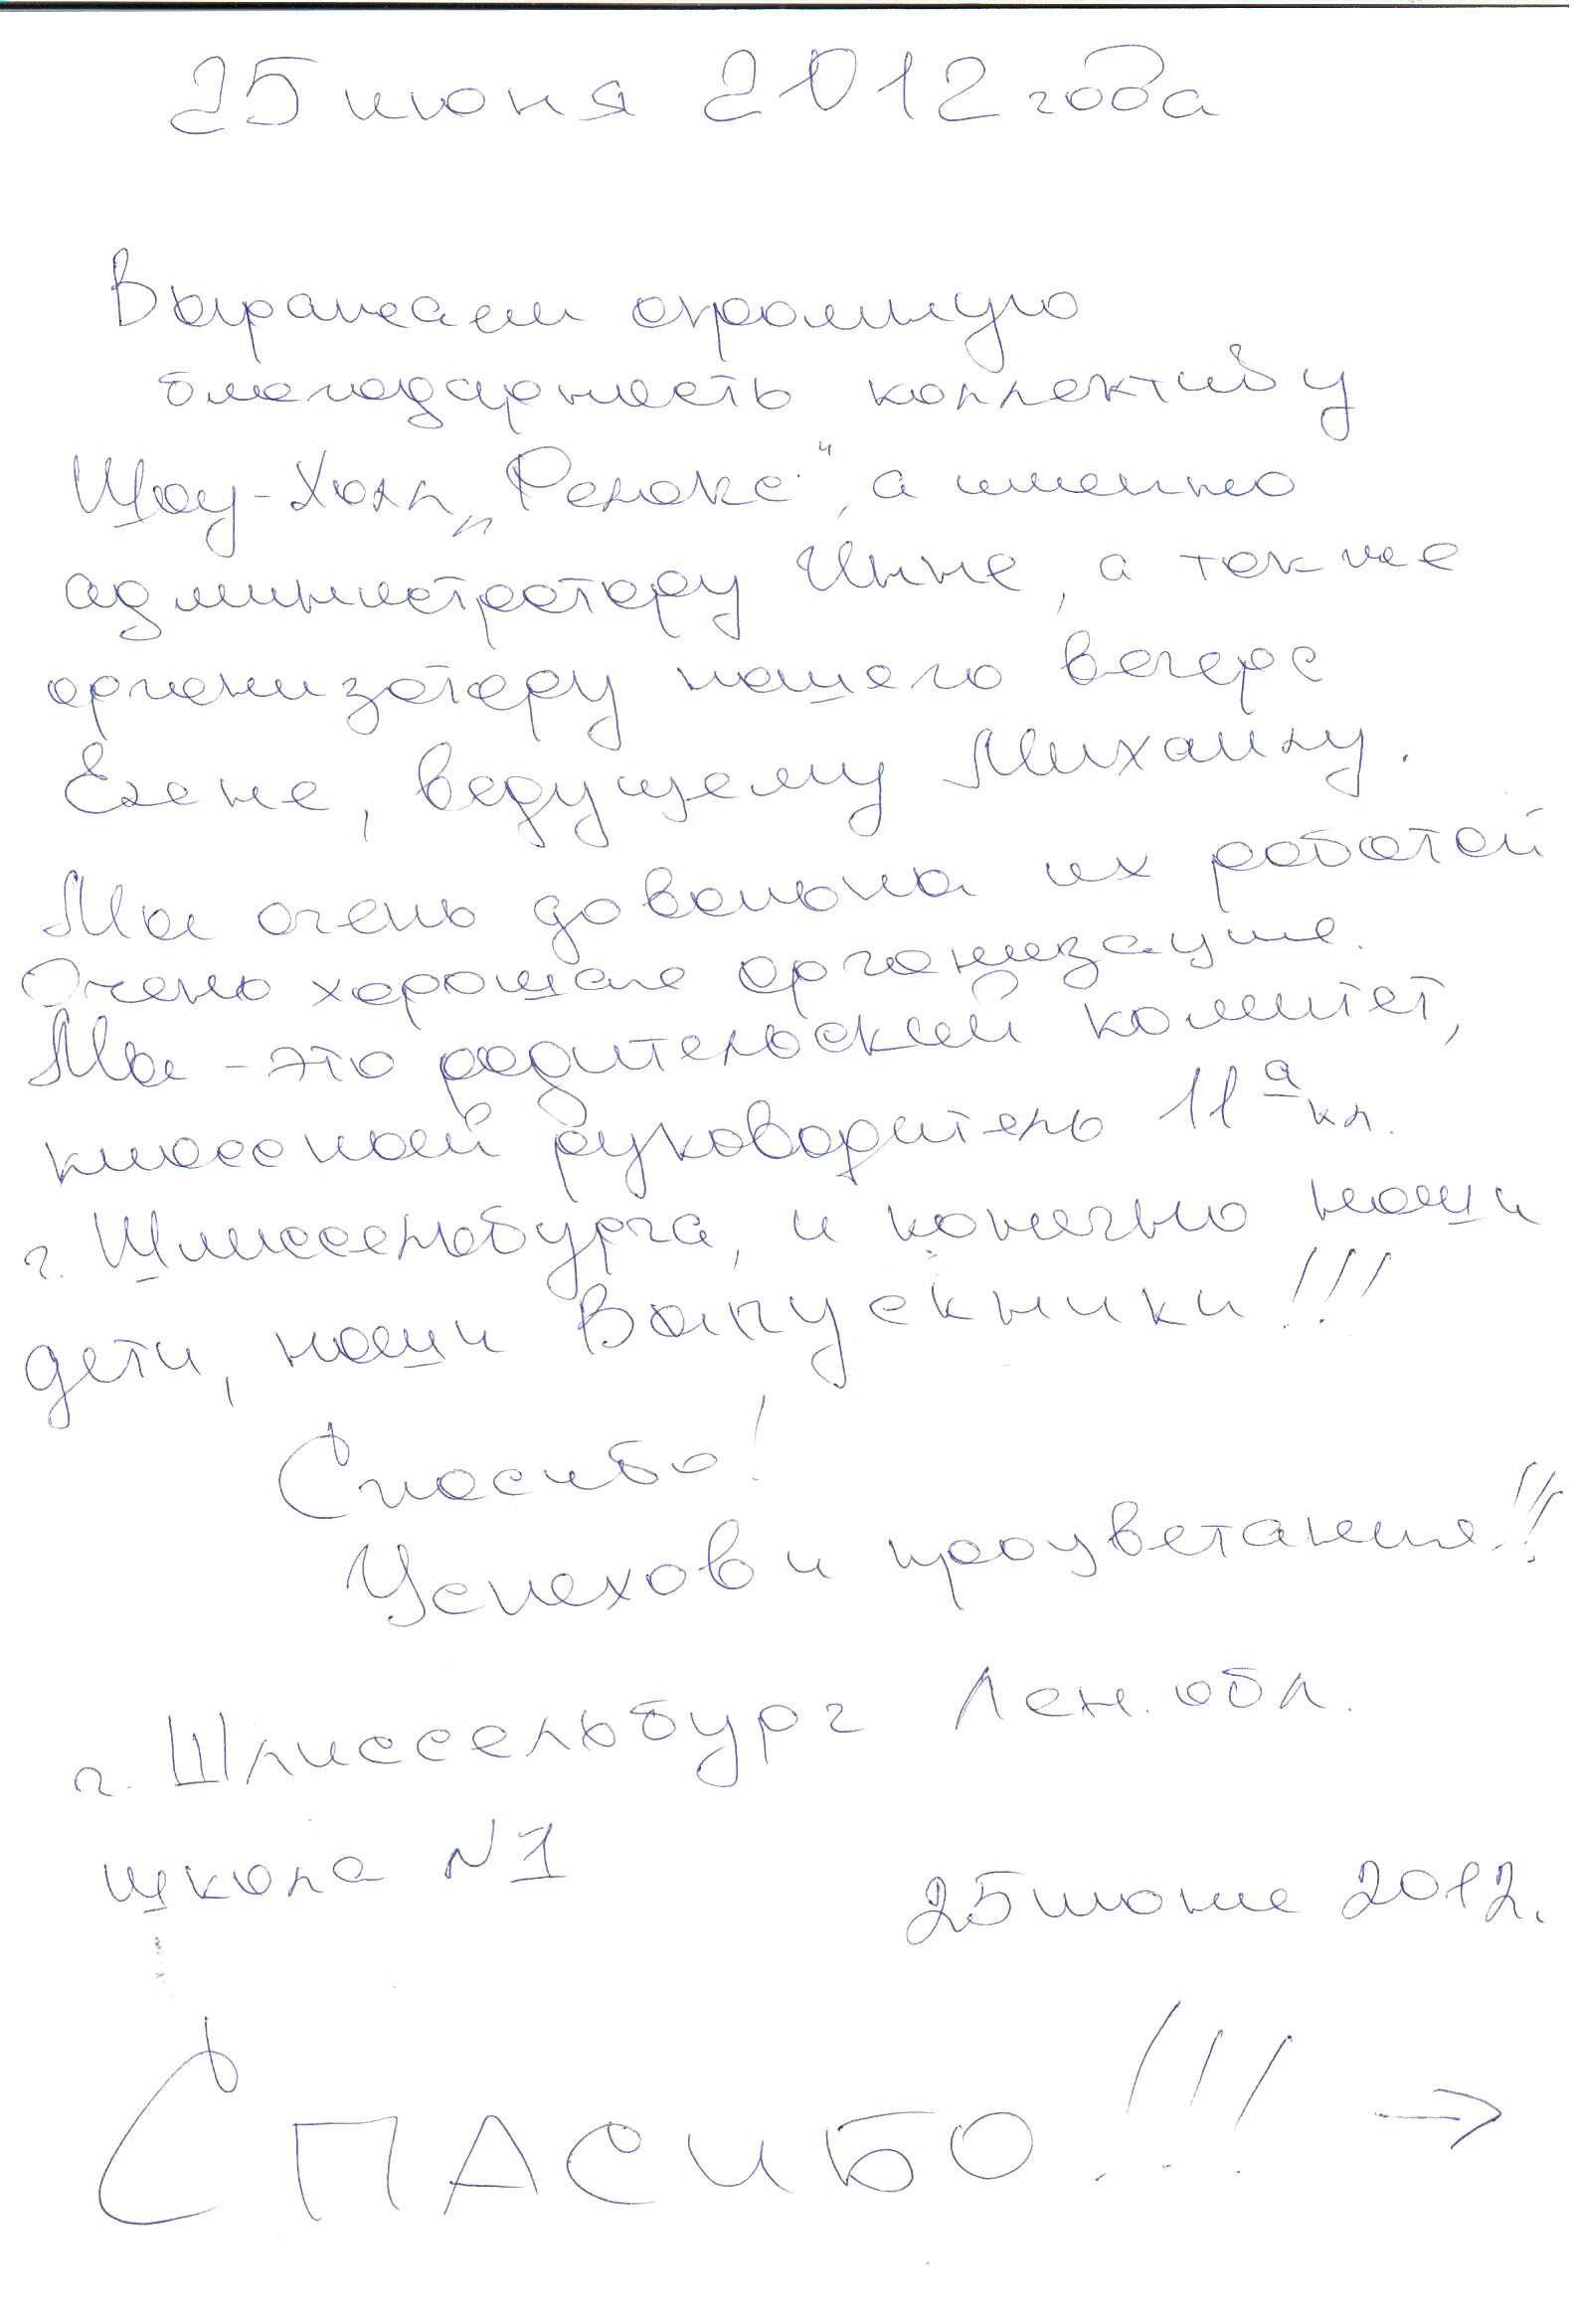 25 июня 2012 года
Выражаем огромную
благодарность коллективу
Шоу-Холл „Релакс", а именно
администратору Инне, а также
организатору нашего вечера
Елене, ведущему Михаилу.
Мы очень довольны их работой
Очень хорошая организация.
Мы - это родительский комитет,
классный руководитель 11а кл.
г. Шлиссельбурга, и конечно наши
дети, наши Выпускники!!!
Спасибо!
Успехов и процветания!!!
г. Шлиссельбург Лен. обл.
школа N1
25 июня 2012.
СПАСИБО!!! →